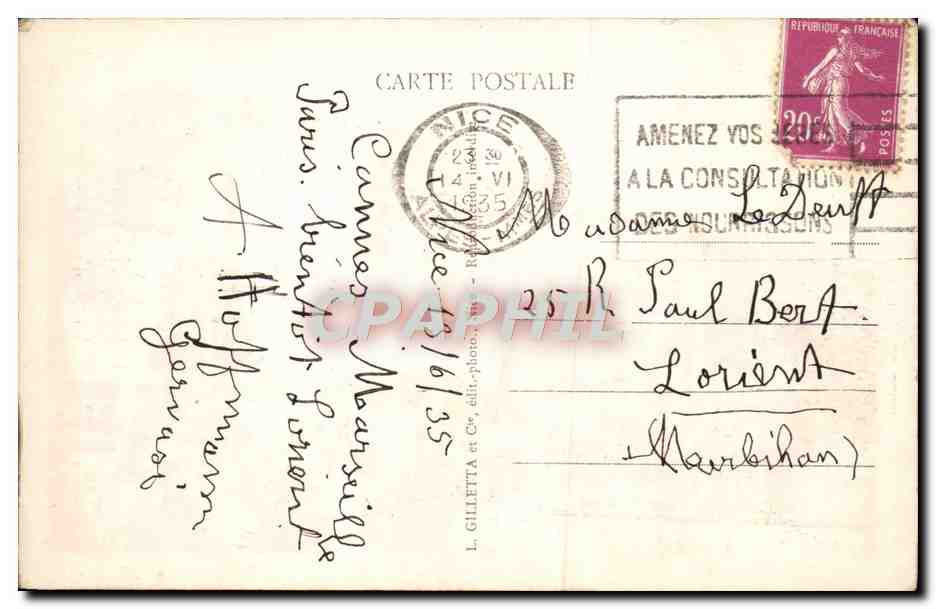 CARTE POSTALE
REPUBLIQUE FRANÇAISE
20c
POSTES
NICE
23 30
14 VI
1935
AMENEZ VOS BEBES
A LA CONSULTATION
DES NOURRISSONS
Nice 13/6/35
Cannes Marseille
Paris. bientôt Lorient
A Hoffmann
Gervais
L. GILLETTA et Cie, édit.-photo., Nice - Reproduction interdite
Madame Le Deuff
25 R Paul Bert
Lorient
(Morbihan)
CPAPHIL